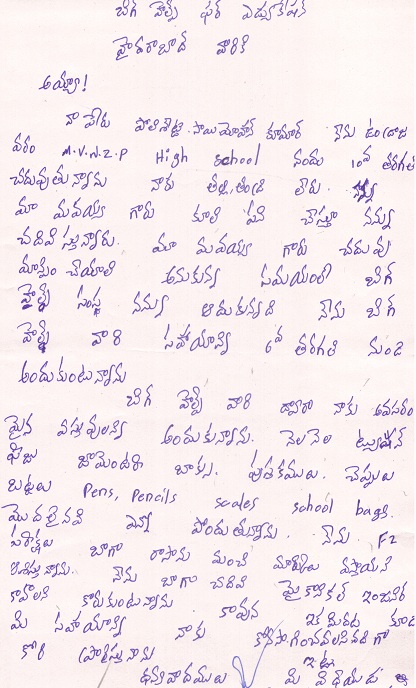 బిగ్ హెల్ప్ ఫర్ ఎడ్యుకేషన్
హైదరాబాద్ వారికి
అయ్యా!
నా పేరు పోలిశెట్టి సాయిమోహన్ కుమార్ నేను ఉండ్రాజ
వరం M.V.N.Z.P High school నందు 10వ తరగతి
చదువుతున్నాను నాకు తల్లి, తండ్రి లేరు. నన్ను
మా మవయ్య గారు కూలి పని చేస్తూ నన్ను
చదివిస్తున్నారు. మా మవయ్య గారు చదువు
మాన్పించేయాలి అనుకున్న సమయంలో బిగ్
హెల్ప్ సంస్థ నన్ను ఆదుకున్నది నేను బిగ్
హెల్ప్ వారి సహాయాన్ని 6వ తరగతి నుండి
అందుకుంటున్నాను
బిగ్ హెల్ప్ వారి ద్వారా నాకు అవసరం
మైన వస్తువులన్ని అందుకున్నాను. నెలనెల ట్యుషన్
ఫీజు జామెంటరి బాక్సు. పుతకములు. చెప్పులు
బట్టలు Pens, Pencils scales school bags.
మొదలైనవి ఎన్నో పొందుతున్నాను. నేను F2
పరీక్షలు బాగా రాసాను మంచి మార్కులు వస్తాయని
ఆశిస్తున్నాను. నేను బాగా చదివి మైకానికల్ ఇంజనీర్
కావాలని కోరుకుంటున్నాను. కావున ఇక మీదట కూడ
మీ సహాయాన్ని నాకు కొనసాగించవలసినదిగా
కోరి ప్రార్థిస్తునాను ఇట్లు
ధన్యవాదములు మీ విధేయుడు